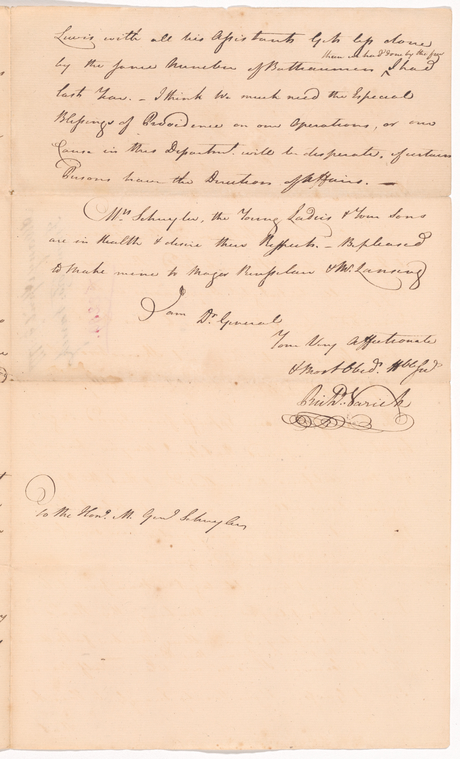 Lewis with all his Assistants Gets less done
than was had done by the few
by the same Number of Batteaumen I had
last Year. — I think We much need the Especial
Blessings of Providence on our Operations, or our
Cause in this Department. will be desperate, if certain
Persons have the Direction of Affairs. —
Mrs Schuyler, the Young Ladies & Your Sons
are in Health & desire their Respects. — Be pleased
to make mine to Major Renselaer & Mr Lansing
I am Dr General
Your Very Affectionate
& Most Obedt. Hble
Richd. Varick
To the Honl. M Genl Schuyler